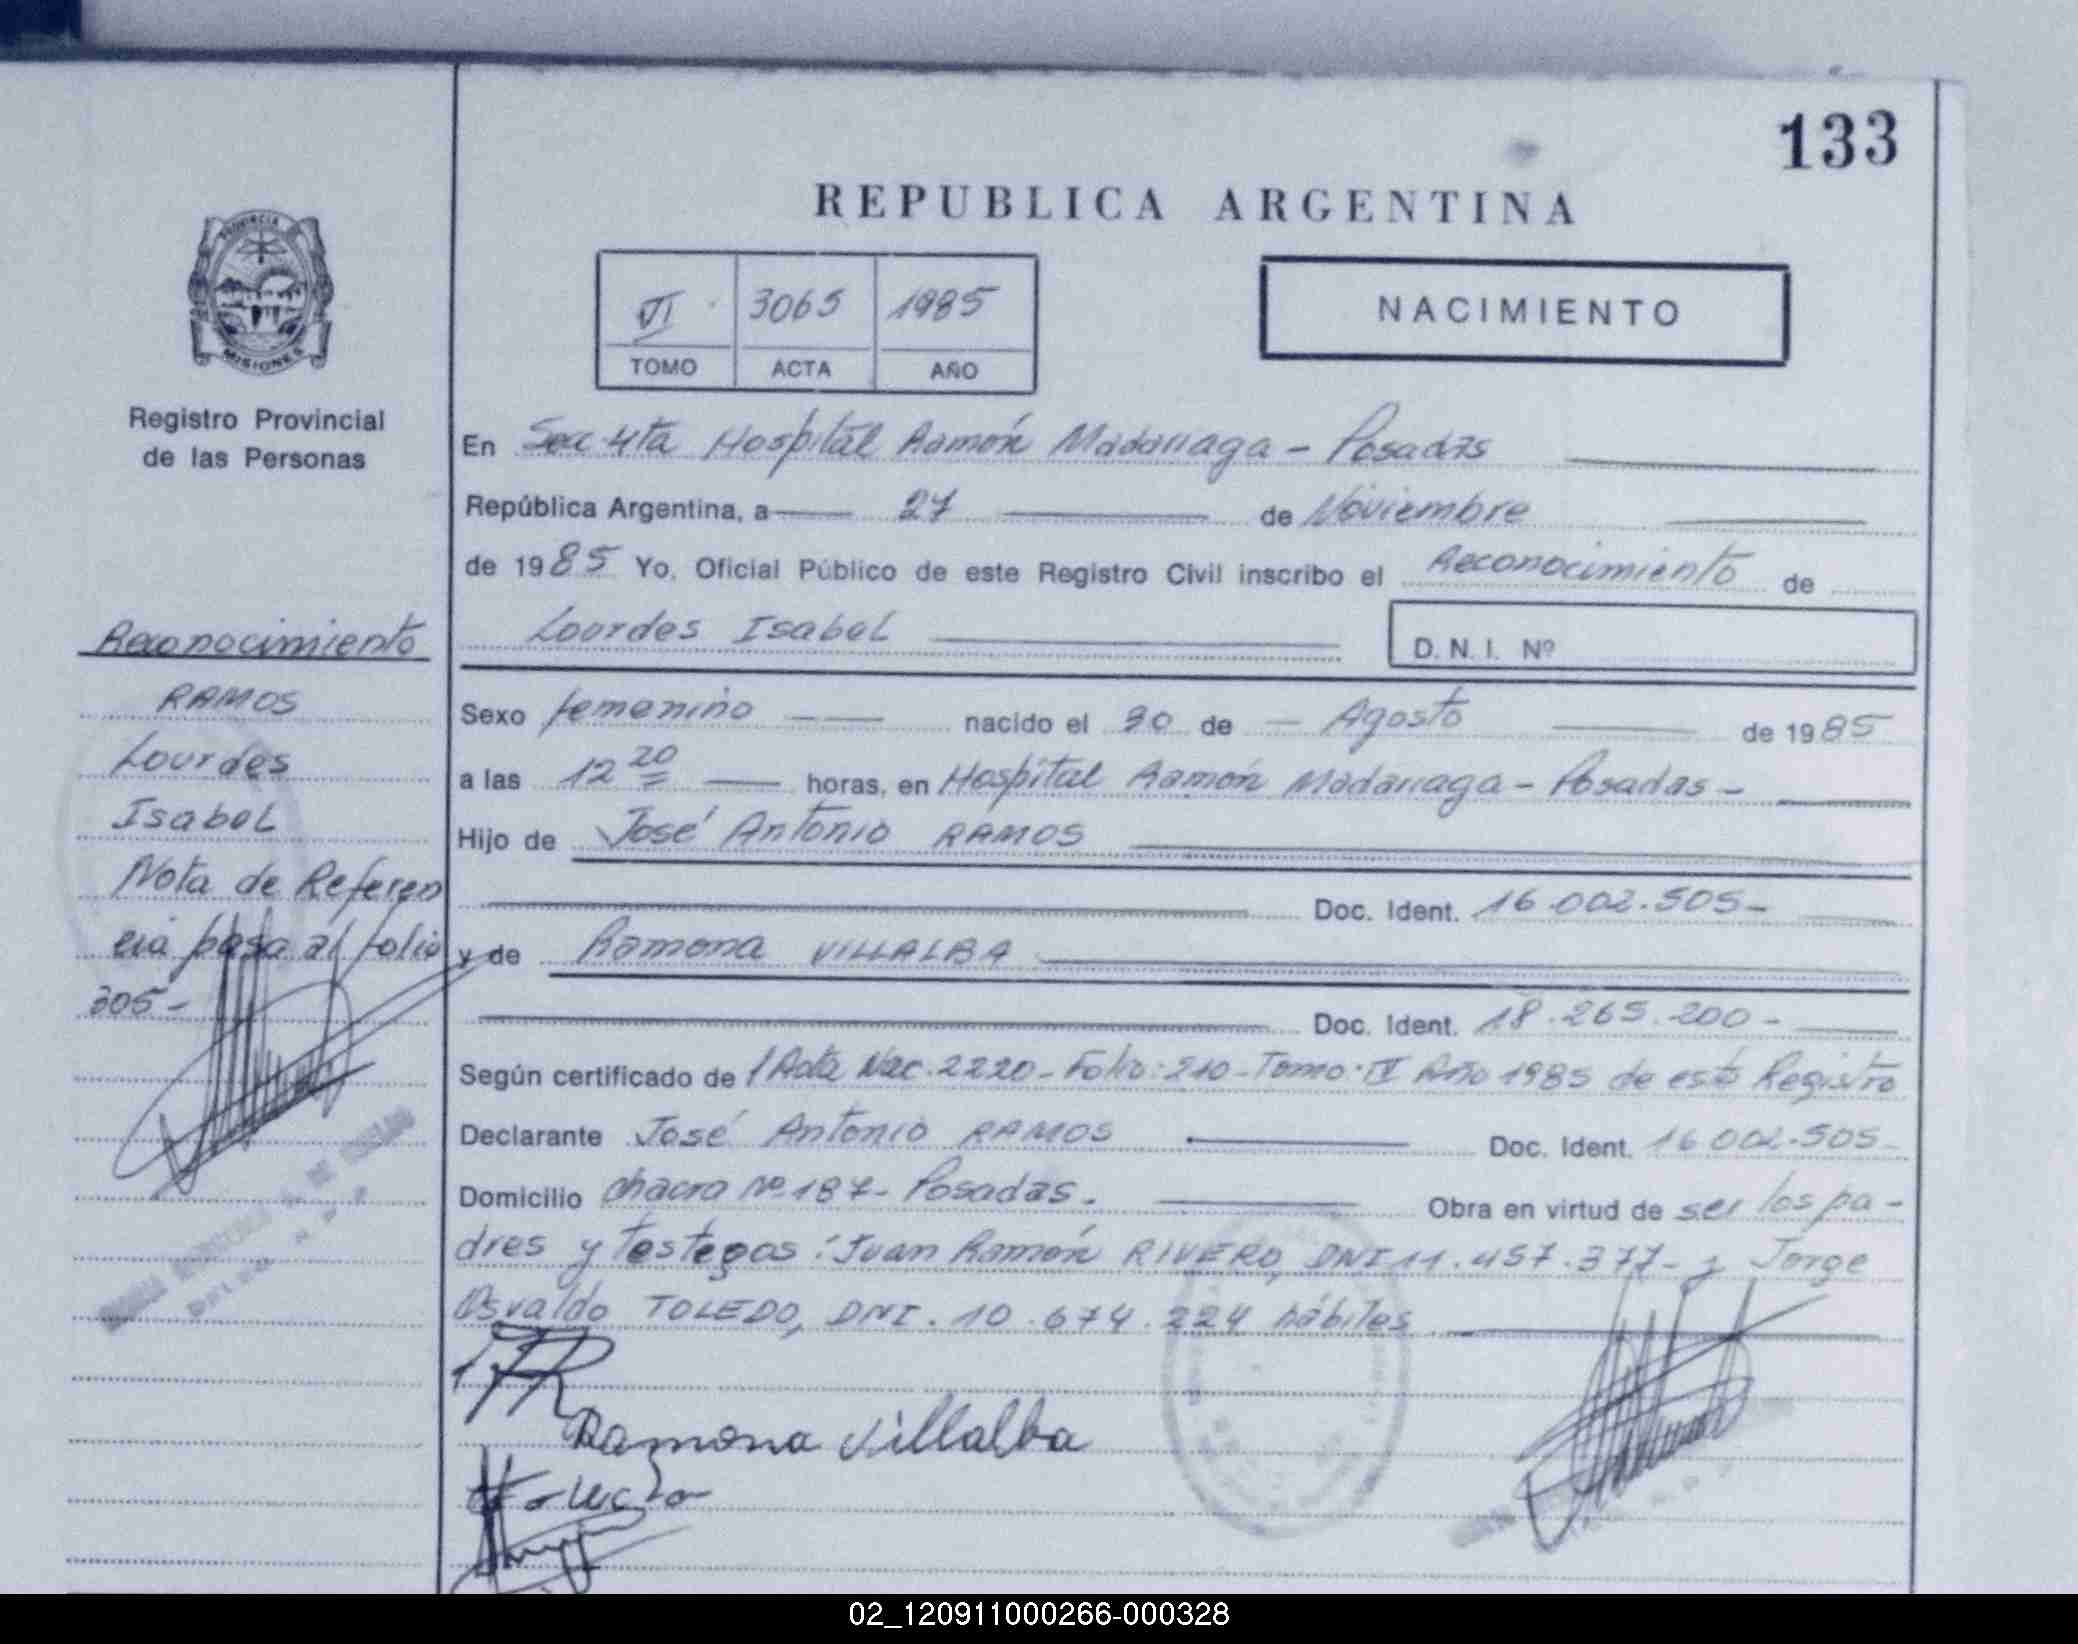 133
REPUBLICA ARGENTINA
PROVINCIA
MISIONES
Registro Provincial
de las Personas
VI 3065 1985
TOMO ACTA AÑO
NACIMIENTO
En Secc 4ta Hospital Ramón Madariaga - Posadas
República Argentina, a 27 de Noviembre
de 1985 Yo, Oficial Público de este Registro Civil inscribo el Reconocimiento de
Lourdes Isabel
D. N. I. Nº
Sexo femenino nacido el 30 de Agosto de 1985
a las 12 20 horas, en Hospital Ramón Madariaga - Posadas -
Hijo de José Antonio RAMOS
Doc. Ident. 16.002.505-
y de Ramona VILLALBA
Doc. Ident. 18.265.200-
Según certificado de / Acta Nac. 2220- Folio: 210- Tomo: IV Año 1985 de este Registro
Declarante José Antonio RAMOS Doc. Ident. 16.002.505-
Domicilio chacra Nº 187- Posadas. Obra en virtud de ser los pa-
dres y testegos: Juan Ramón RIVERO, DNI 11.457.377- y Jorge
Osvaldo TOLEDO, DNI. 10.674.224 hábiles
Ramona Villalba
Reconocimiento
RAMOS
Lourdes
Isabel
Nota de Referen
cia pasa al folio
305-
02_120911000266-000328